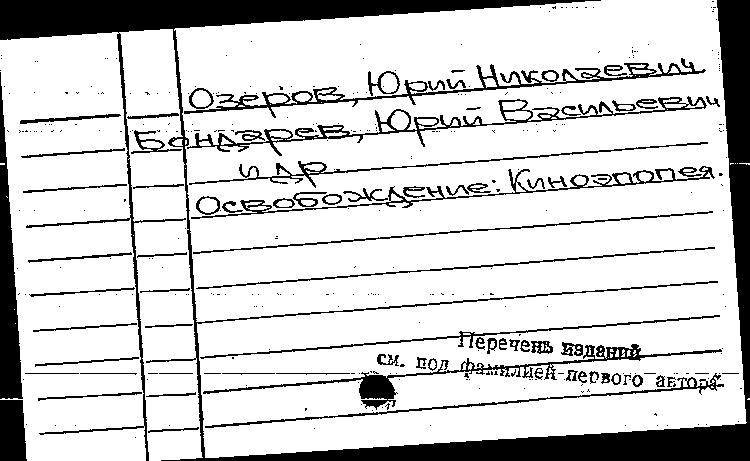 Озеров, Юрий Николаевич
Бондарев, Юрий Васильевич
и др.
Освобождение: Киноэпопея.
Перечень изданий
см. под фамилией первого автора